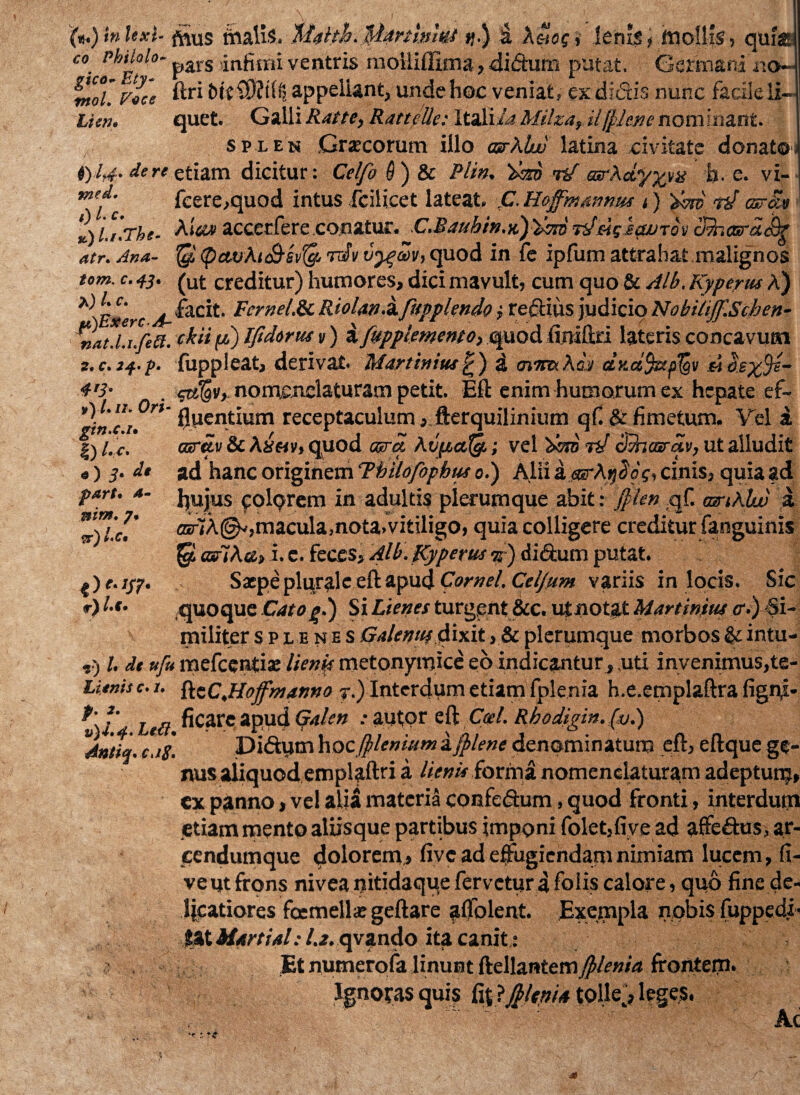 (n.) in lexi- mus malis. Matth. Martinius η.) à λεῖος, lenis, mollis, quia
co Philolo- pars infimi ventris molliſſima, dictum putat. Germani no-
gico- Ety-
mol. Voce ſtri die Miltz appellant, unde hoc veniat, ex dictis nunc facile li-
Lien. quet. Galli Ratte, Rattelle: Itali la Milza, il ſplene nominant.
SPLEN Græcorum illo σπλὼ latina civitate donato
θ) l.4. de re etiam dicitur: Celſo θ) & Plin. h. e. vi-
med. ſcere, quod intus ſcilicet lateat. C. Hoffmannus ι)
ι) l. c.
κ) l.1. The- accerſere conatur. C. Bauhin. κ)
atr. Ana- quod in ſe ipſum attrahat malignos
tom. c. 43. (ut creditur) humores, dici mavult, cum quo & Alb. Kyperus λ)
λ) l. c. facit. Fernel. & Riolan. à ſupplendo; rectius judicio Nobiliſſ. Schen-
μ) Exerc. A-
nat. l.1. ſect. ckii μ) Iſidorus ν) à ſupplemento, quod ſiniſtri lateris concavum
2. c. 24. p. ſuppleat, derivat. Martinius ξ) à
413. nomenclaturam petit. Eſt enim humorum ex hepate ef-
ν) l. 11. Ori- fluentium receptaculum, ſterquilinium qſ. & fimetum. Vel à
gin. c. 1.
ξ) l. c. quod vel ut alludit
ο) 3. de ad hanc originem Philoſophus ο.) Alii à cinis, quia ad
part. a- hujus colorem in adultis plerumque abit: ſplen qſ. à
nim. 7. macula, nota, vitiligo, quia colligere creditur ſanguinis
π) l. c. i. e. feces, Alb. Kyperus π) dictum putat.
ρ) e. 157. Sæpe plurale eſt apud Cornel. Celſum variis in locis. Sic
σ) l. c. quoque Cato ρ.) Si Lienes turgent &c. ut notat Martinius σ.) Si-
militer SPLENES Galenus dixit, & plerumque morbos & intu-
τ) l. de uſu meſcentiæ lienis metonymicè eò indicantur, uti invenimus, te-
Lienis c. 1. ſte C. Hoffmanno τ.) Interdum etiam ſplenia h. e. emplaſtra ſigni-
p. 2. ficare apud Galen: autor eſt Cœl. Rhodigin. (υ.)
υ) l. 4. Lect.
Antiq. c. 18. Dictum hoc ſplenium à ſplene denominatum eſt, eſtque ge-
nus aliquod emplaſtri à lienis formâ nomenclaturam adeptum,
ex panno, vel aliâ materiâ confectum, quod fronti, interdum
etiam mento aliisque partibus imponi ſolet, ſive ad affectus, ar-
cendumque dolorem, ſive ad effugiendam nimiam lucem, ſi-
ve ut frons nivea nitidaque ſervetur à ſolis calore, quò ſine de-
licatiores fœmellæ geſtare aſſolent. Exempla nobis ſuppedi-
tat Martial: l. 2. qvando ita canit:
Et numeroſa linunt ſtellantem ſplenia frontem.
Ignoras quis ſit? ſplenia tolle, leges.
Ad